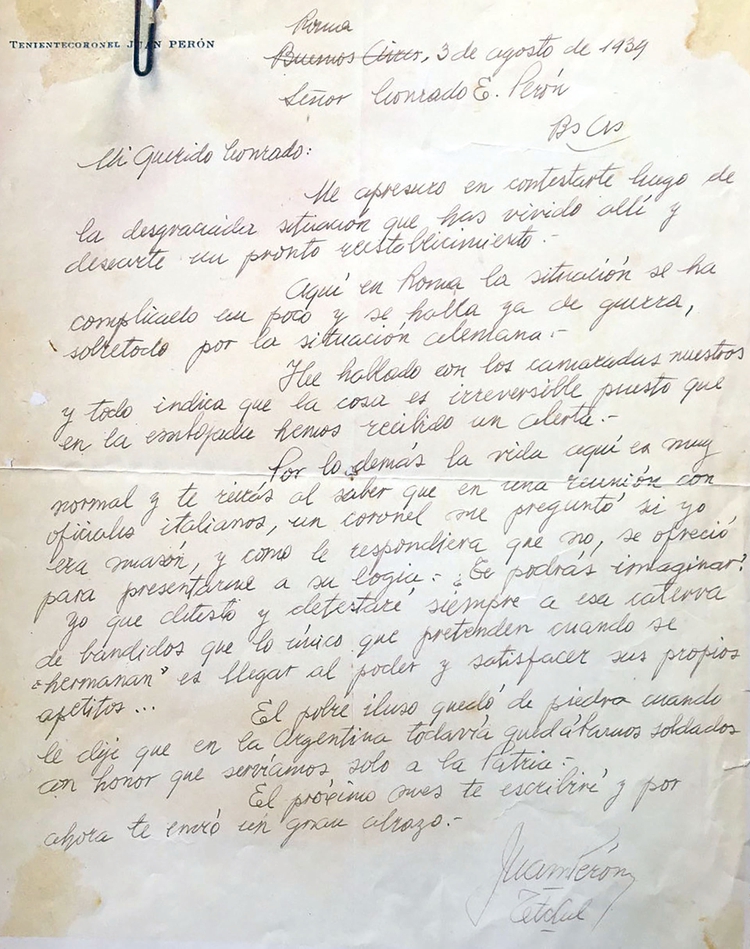 TENIENTECORONEL JUAN PERÓN
Roma
Buenos Aires, 3 de agosto de 1939
Señor Conrado E. Perón
Bs As
Mi Querido Conrado:
Me apresuro en contestarte luego de
la desgraciada situación que has vivido allí y
desearte un pronto reestablecimiento.-
Aquí en Roma la situación se ha
complicado un poco y se halla ya de guerra,
sobretodo por la situación alemana.-
He hablado con los camaradas nuestros
y todo indica que la cosa es irreversible puesto que
en la embajada hemos recibido un alerta.-
Por lo demás la vida aquí es muy
normal y te reirás al saber que en una reunión con
oficiales italianos, un coronel me preguntó si yo
era masón, y como le respondiera que no, se ofreció
para presentarme a su logia.- ¿Te podrás imaginar?
yo que detesto y detestaré siempre a esa caterva
de bandidos que lo único que pretenden cuando se
"hermanan" es llegar al poder y satisfacer sus propios
apetitos...
El pobre iluso quedó de piedra cuando
le dije que en la Argentina todavía quedábamos soldados
con honor que servíamos solo a la Pátria.-
El próximo mes te escribiré y por
ahora te envió un gran abrazo.-
Juan Perón